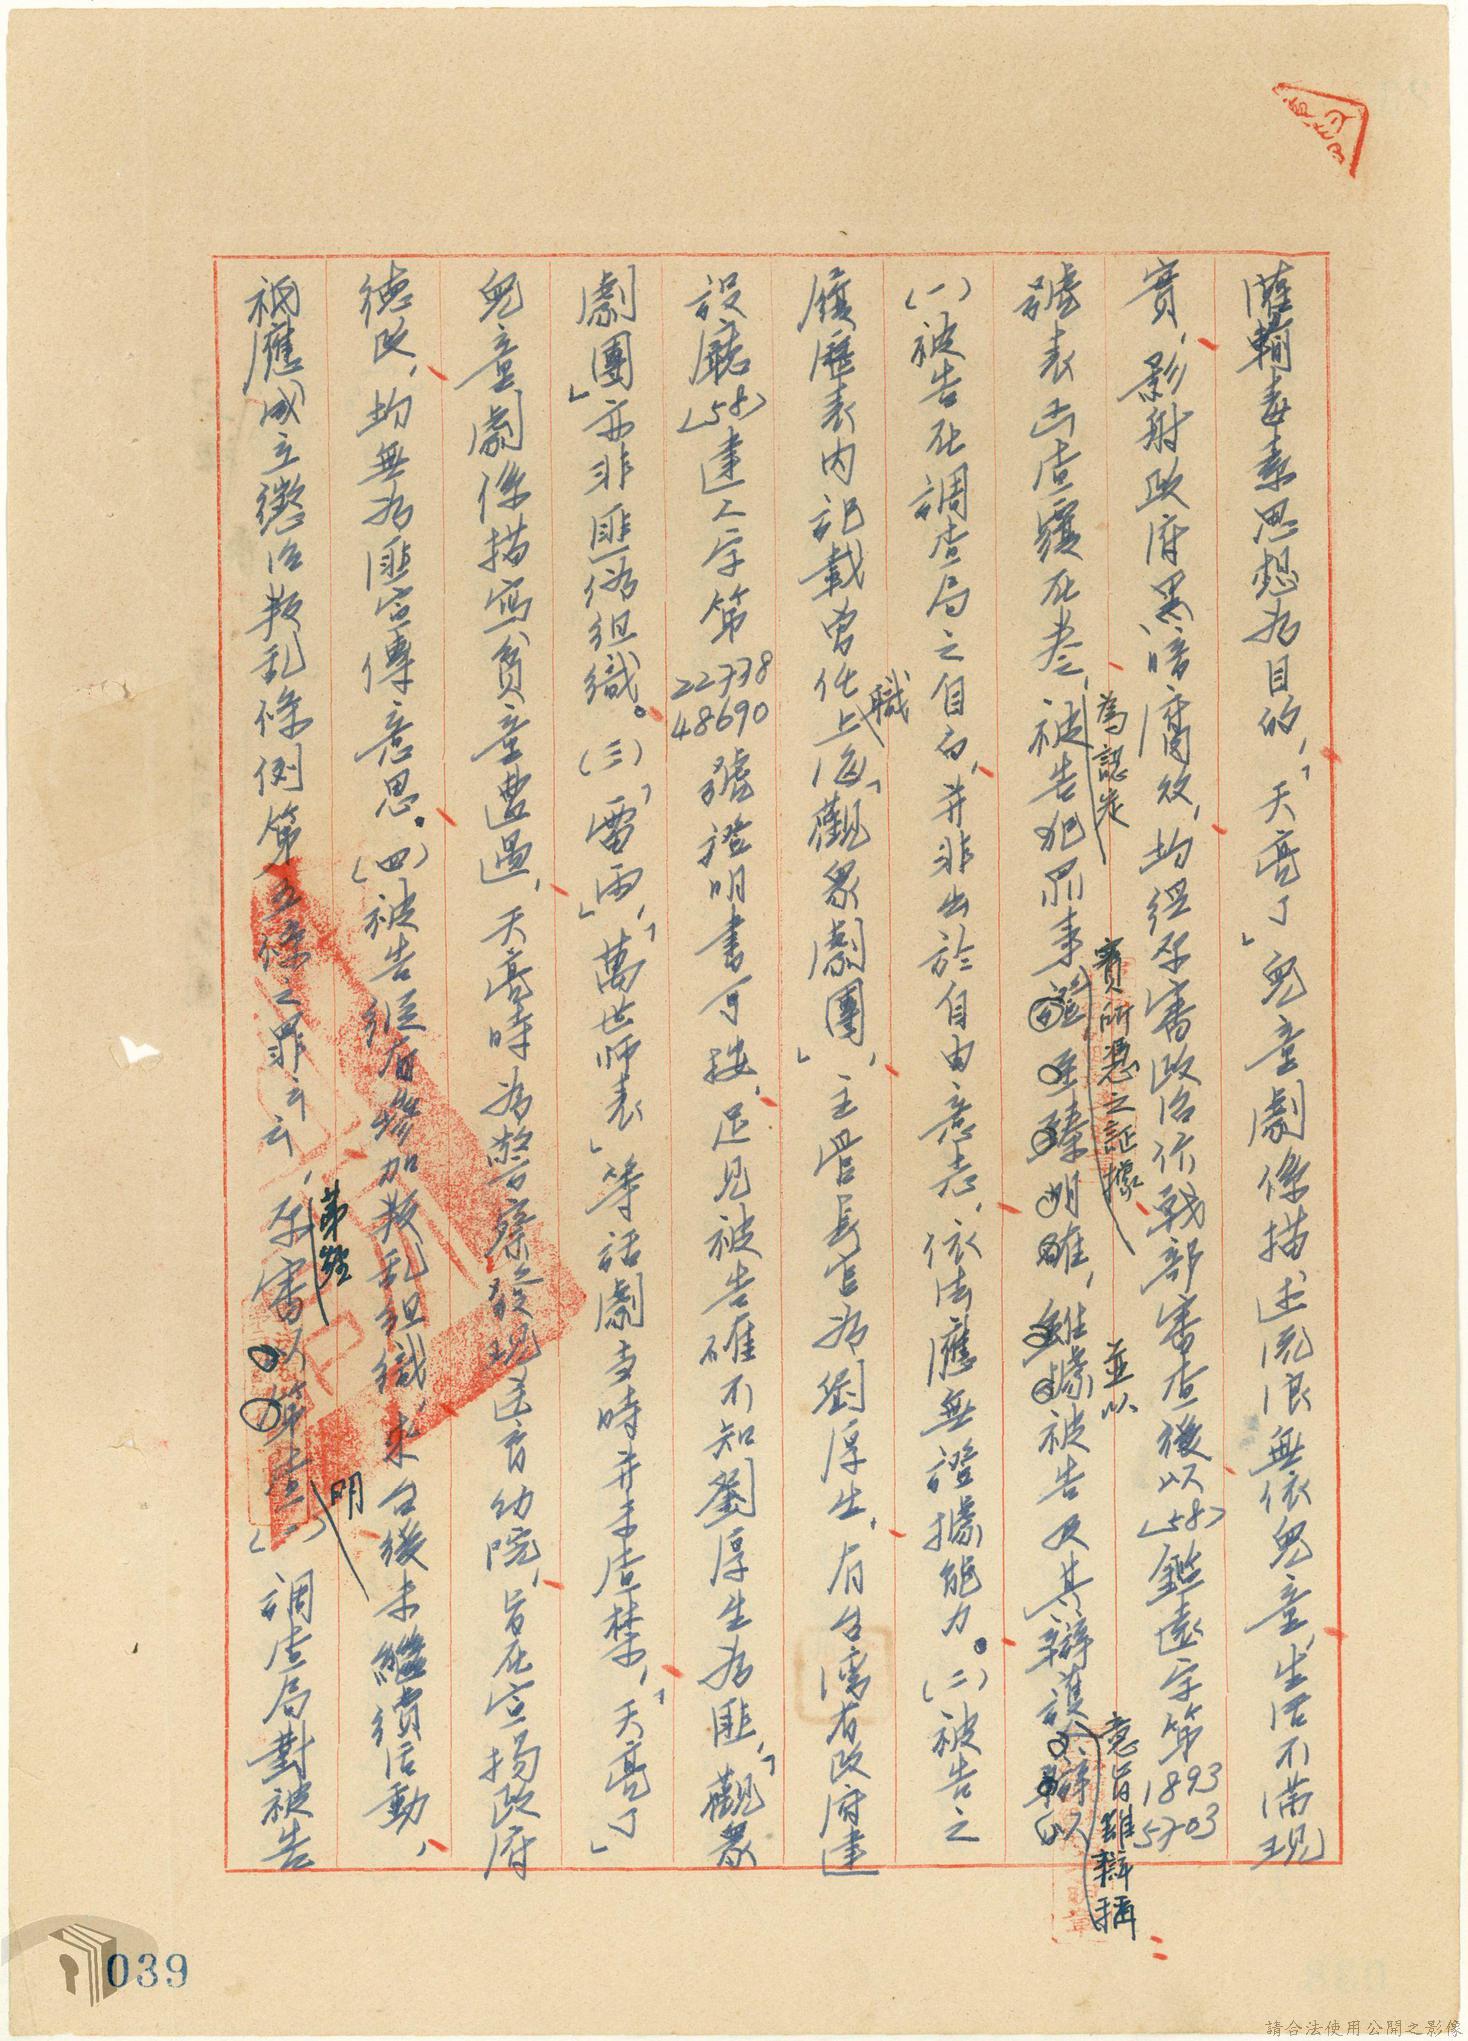 薩輸毒素思想為目的，「天亮了」兒童劇係描述流浪無依兒童，生活不滿現
實，影射政府黑暗腐敗，均經本審政治作戰部審查後以(58)鑑遠字第1893 5703
號表出查覆在卷，為認定被告犯罪事實所憑之証據並以被告及其辯護意旨雖辯稱
(一)被告在調查局之自白，并非出於自由意志，依法應無證據能力。(二)被告之
履歷表內記載曾任職上海「觀衆劇團」，主管長官為劉厚生，有台湾省政府建
設廳(58)建人字第22738 48690號證明書可按，足見被告確不知劉厚生為匪，「觀衆
劇團」亦非匪偽組織。(三)「雷雨」，「萬世師表」等話劇当時并未查禁，「天亮了」
兒童劇係描寫貧童遭遇，天亮時為警察發現送育幼院，旨在宣揚政府
德政，均無為匪宣傳意思。(四)被告縱有參加叛乱組織，來台後未繼續活動，
祇應成立懲治叛乱條例第五條之罪云云，第經本審明(一)調查局對被告
039
請合法使用公開之影像